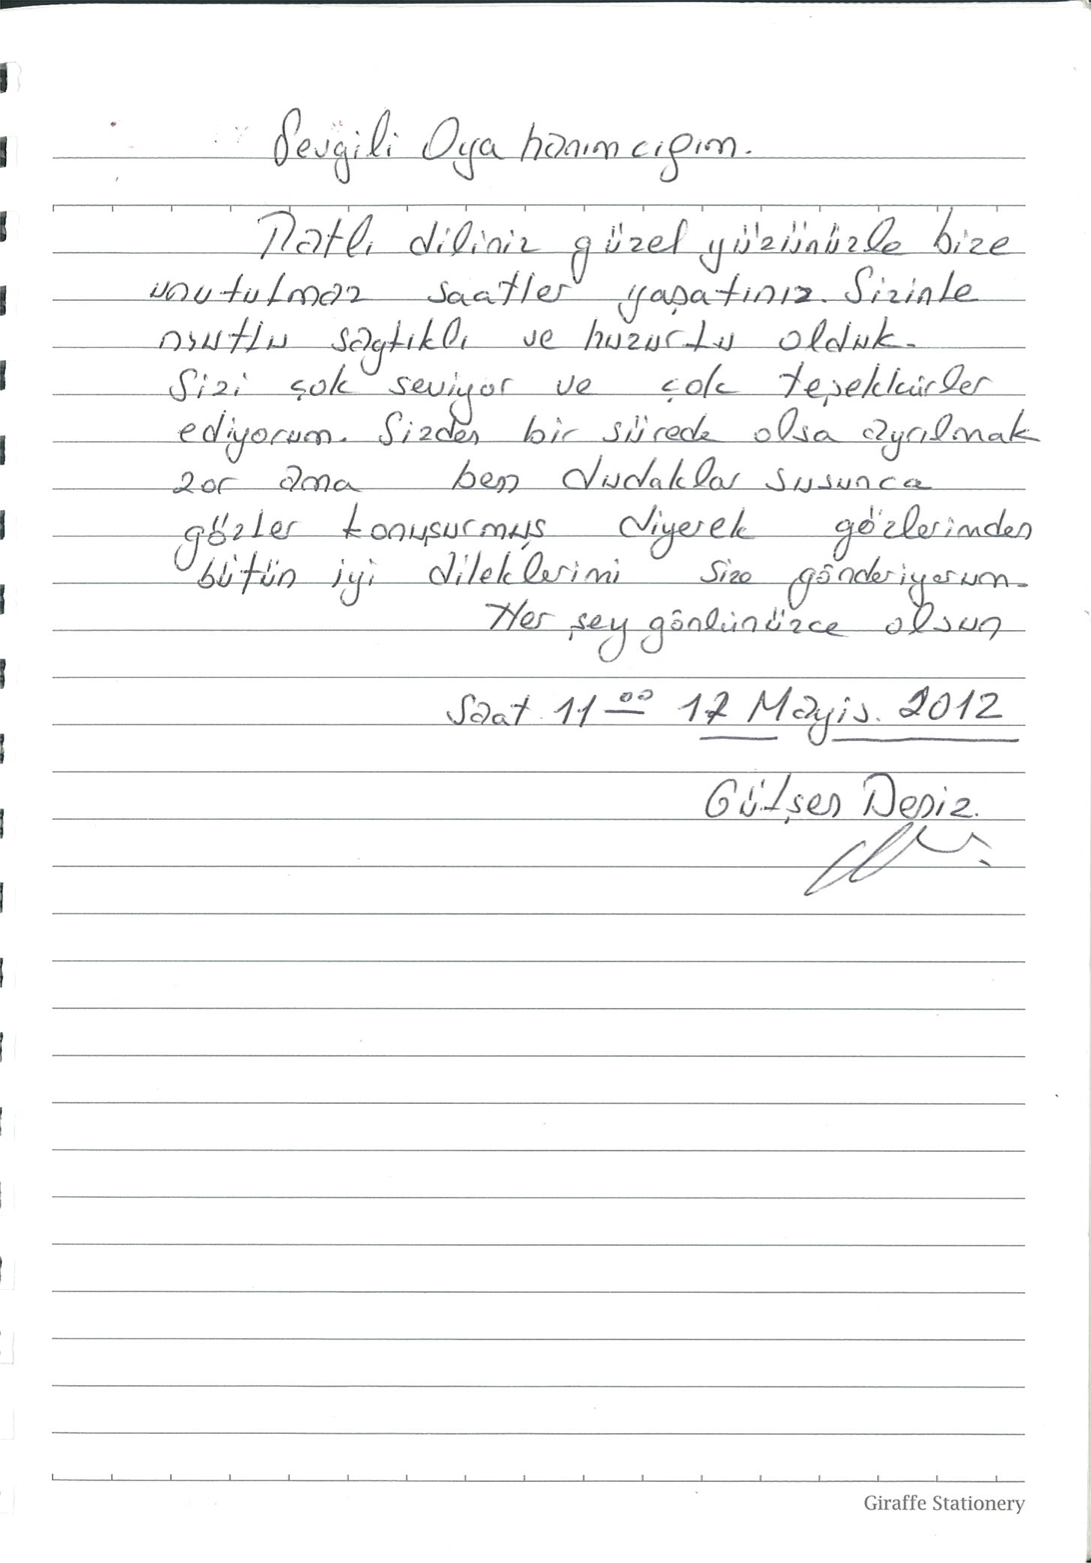 Sevgili Oya hanımcığım.
Tatlı diliniz güzel yüzünüzle bize
unutulmaz saatler yaşatınız. Sizinle
mutlu sağlıklı ve huzurlu olduk.
Sizi çok seviyor ve çok teşekkürler
ediyorum. Sizden bir sürede olsa ayrılmak
zor ama ben dudaklar susunca
gözler konuşurmuş diyerek gözlerimden
bütün iyi dileklerimi size gönderiyorum.
Her şey gönlünüzce olsun
Saat 11 00 17 Mayis. 2012
Gülşen Deniz.
Giraffe Stationery